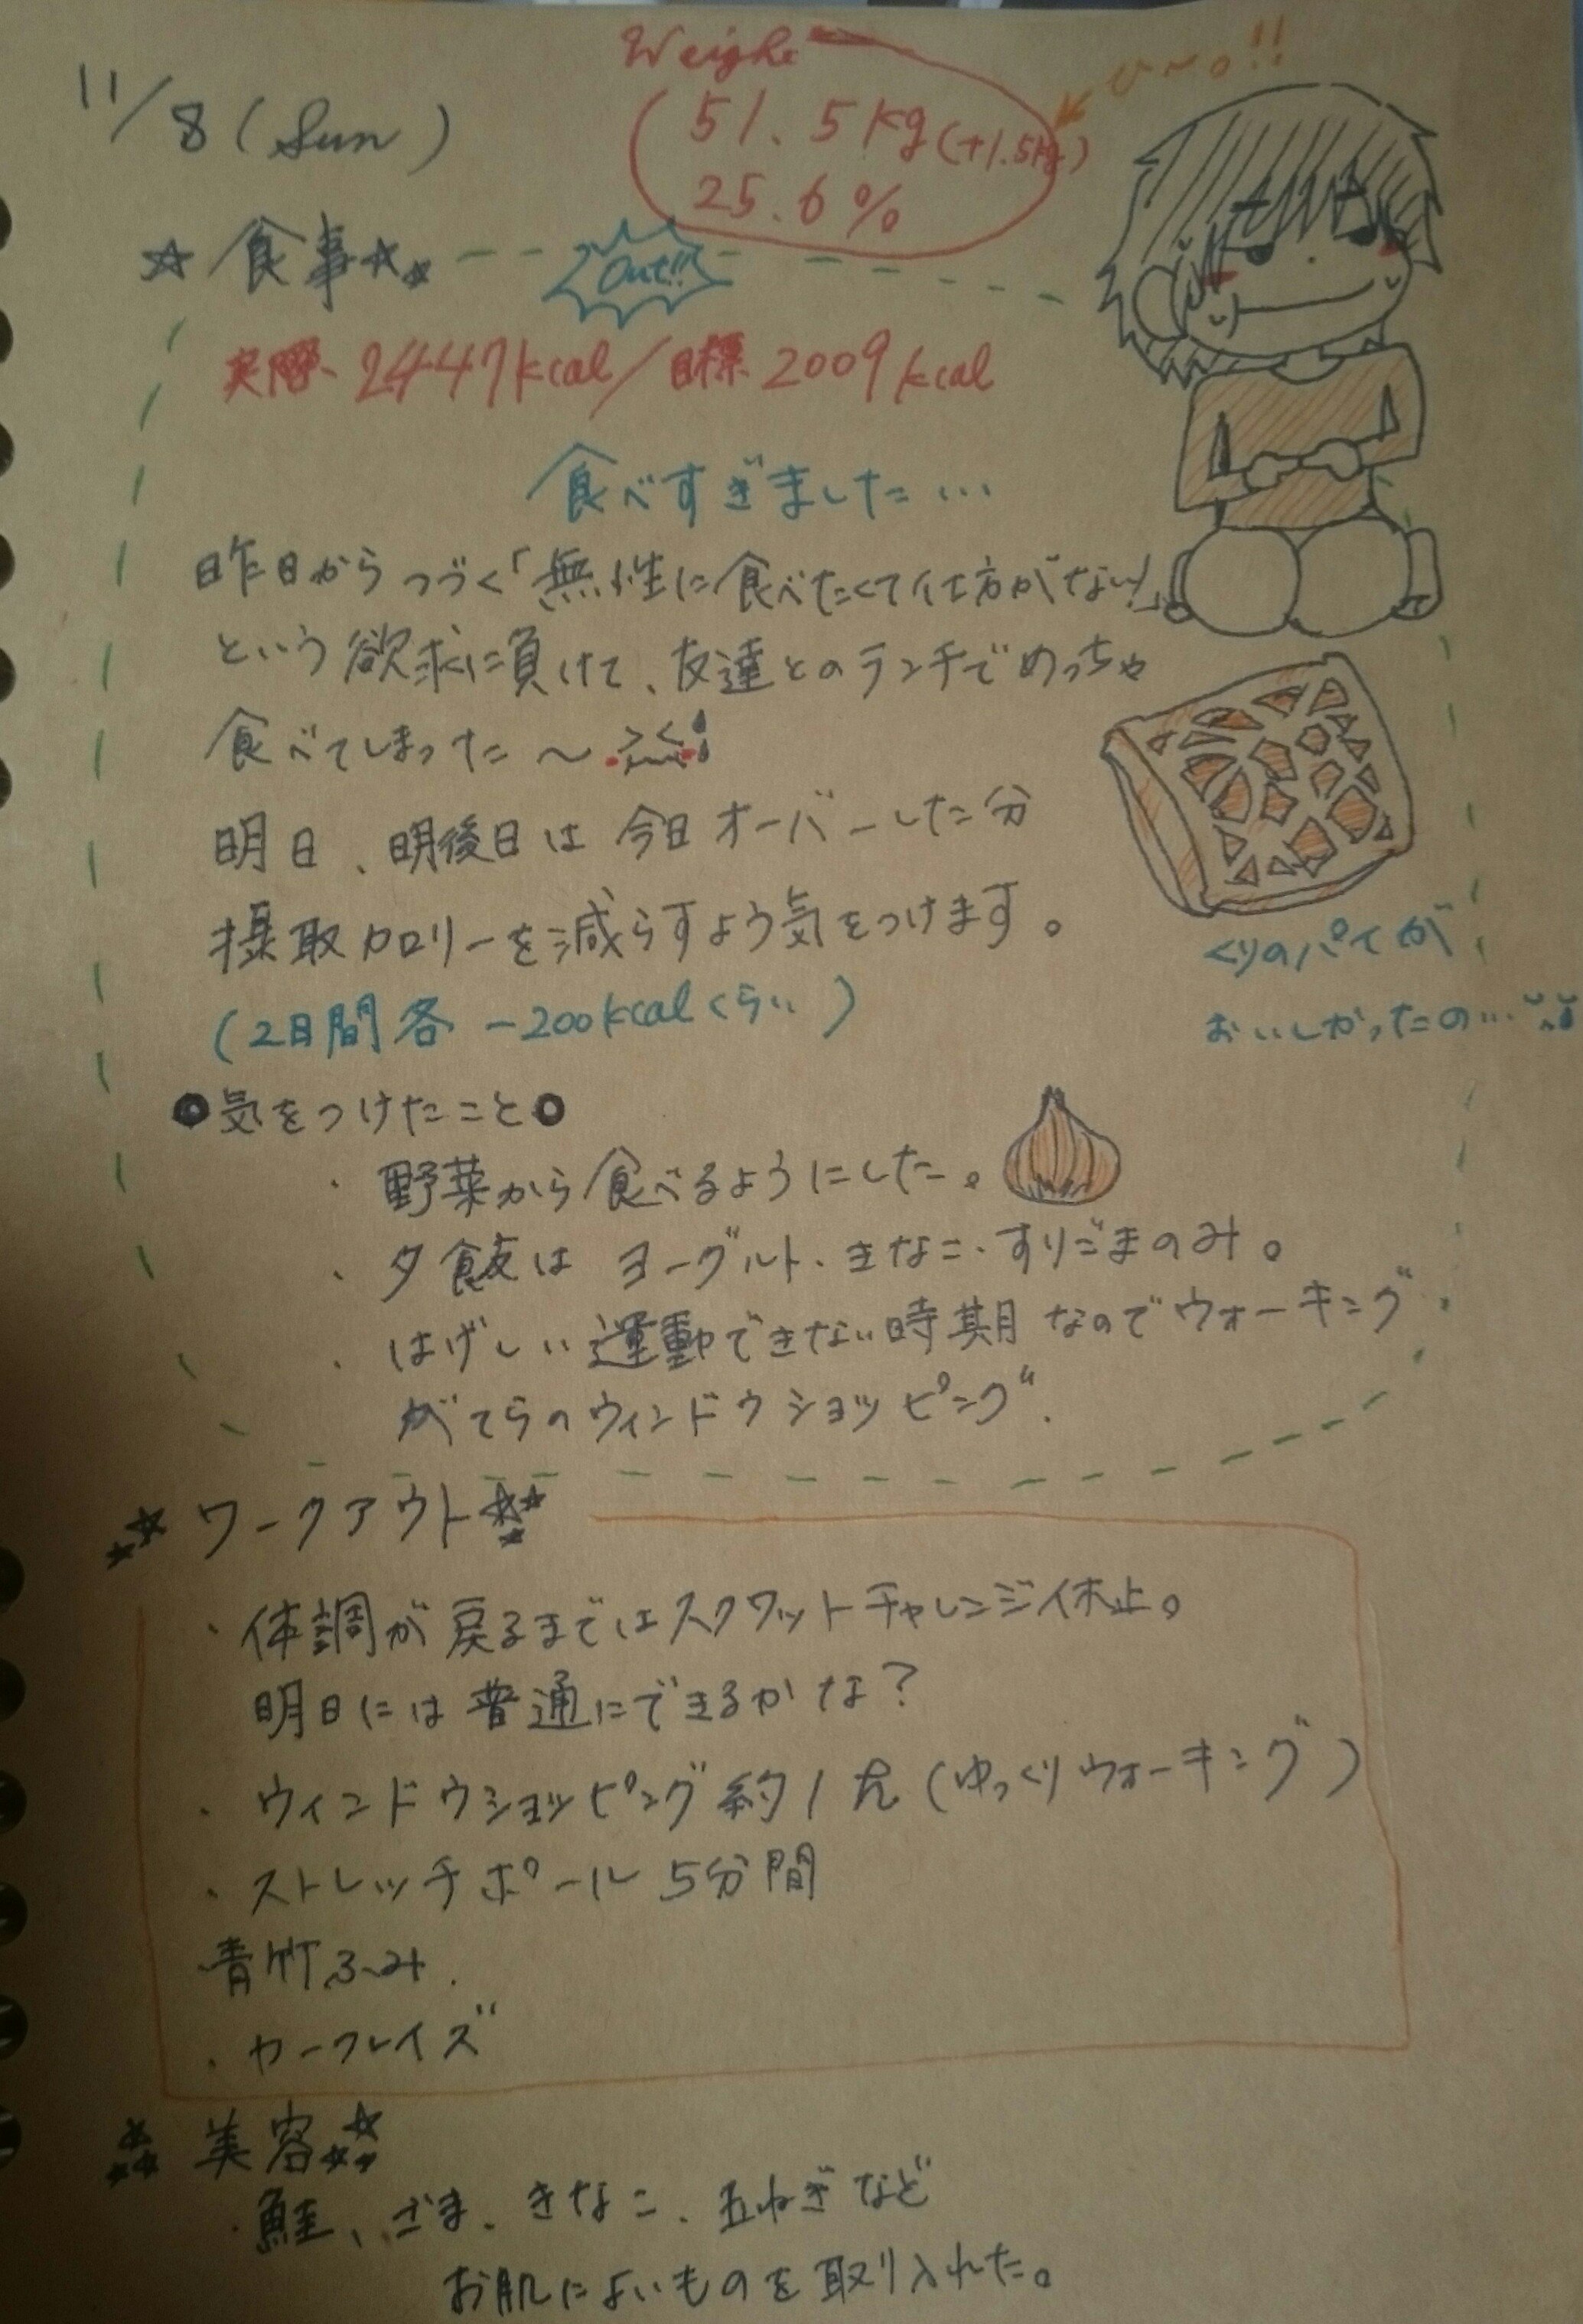 11/8 (Sun)
Weight
51.5kg (+1.5kg)
25.6%
ひ〜。!!
☆食事☆
Out!!
実際 2447kcal/目標 2009kcal
食べすぎました…
昨日からつづく「無性に食べたくて仕方がない!」
という欲求に負けて、友達とのランチでめっちゃ
食べてしまった〜
明日、明後日は今日オーバーした分
摂取カロリーを減らすよう気をつけます。
(2日間各 -200kcalくらい)
くりのパイが
おいしかったの…
●気をつけたこと●
・野菜から食べるようにした。
・夕飯はヨーグルト、きなこ、すりごまのみ。
・はげしい運動できない時期なのでウォーキング
がてらのウィンドウショッピング.
☆ワークアウト☆
・体調が戻るまではスクワットチャレンジ休止。
明日には普通にできるかな?
・ウィンドウショッピング約1h(ゆっくりウォーキング)
・ストレッチポール5分間
・青竹ふみ.
・カーフレイズ
☆美容☆
・鮭、ごま、きなこ、玉ねぎなど
お肌によいものを取り入れた。